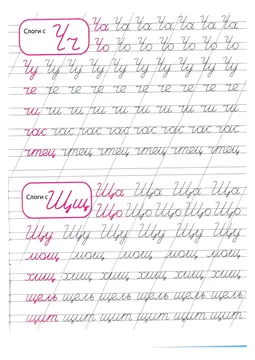 Слоги с Чч
Ча Ча Ча Ча Ча Ча Ча
Чо Чо Чо Чо Чо Чо Чо
Чу Чу Чу Чу Чу Чу Чу Чу Чу
че че че че че че че че
чи чи чи чи чи чи чи чи
час час час час час час час
чтец чтец чтец чтец чтец чтец
Слоги с Щщ
Ща Ща Ща Ща
Що Що Що Що
Щу Щу Щу Щу Щу Щу
мощ мощ мощ мощ мощ
хищ хищ хищ хищ хищ
щель щель щель щель щель
щит щит щит щит щит